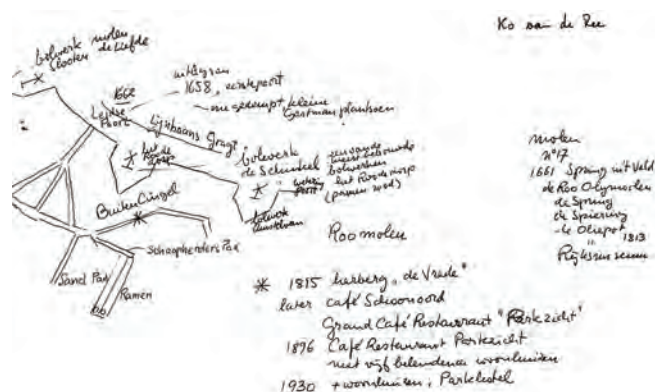 Ko van de Ree
bolwerk molen
Slooten de Liefde
1662
Leidse
Poort
1658, eerste poort
nu gedempt, kleine
Gartmanplantsoen
Lijnbaans Gragt
bolwerk
de Schinkel
een van de
meest bebouwde
bolwerken
het Roode dorp
wetering
poort
bolwerk
Buiten Cingel
Schaapherders Pad
Sand Pad
Ramen
Roomolen
molen
nº 17
1661 Spring uit Veld
de Roo Olymolen
de Spring
de Spiering
de Oliepot
" 1813
Rijksmuseum
* 1815 herberg "de Vrede"
later café Schoonoord
Grand Café Restaurant "Parkzicht"
1896 Café Restaurant Parkzicht
met vijf belendende woonhuizen
1930 + woonhuizen, Parkhotel